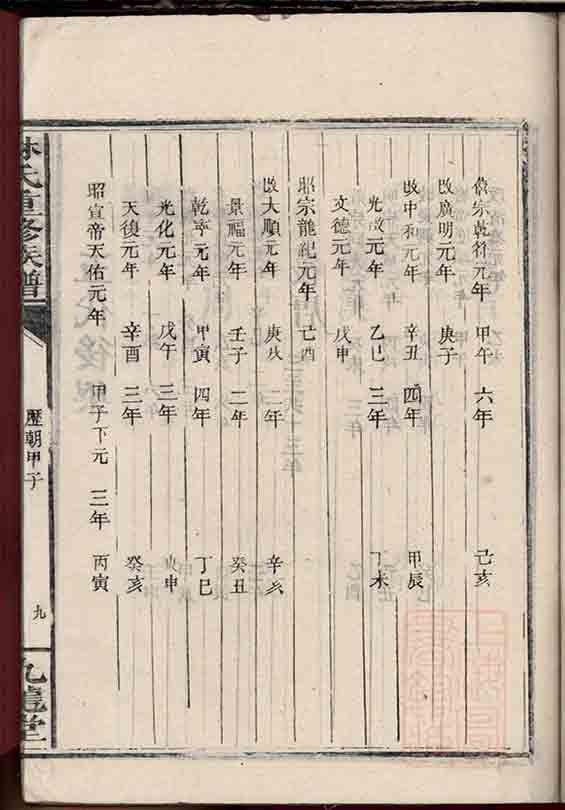 僖宗乾符元年 甲午 六年 己亥
改廣明元年 庚子
改中和元年 辛丑 四年 甲辰
光啟元年 乙巳 三年 丁未
文德元年 戊申
昭宗龍紀元年 己酉
改大順元年 庚戌 二年 辛亥
景福元年 壬子 二年 癸丑
乾寧元年 甲寅 四年 丁巳
光化元年 戊午 三年 庚申
天復元年 辛酉 三年 癸亥
昭宣帝天佑元年 甲子下元 三年 丙寅
林氏重修族譜
歷朝甲子
九
九龍堂